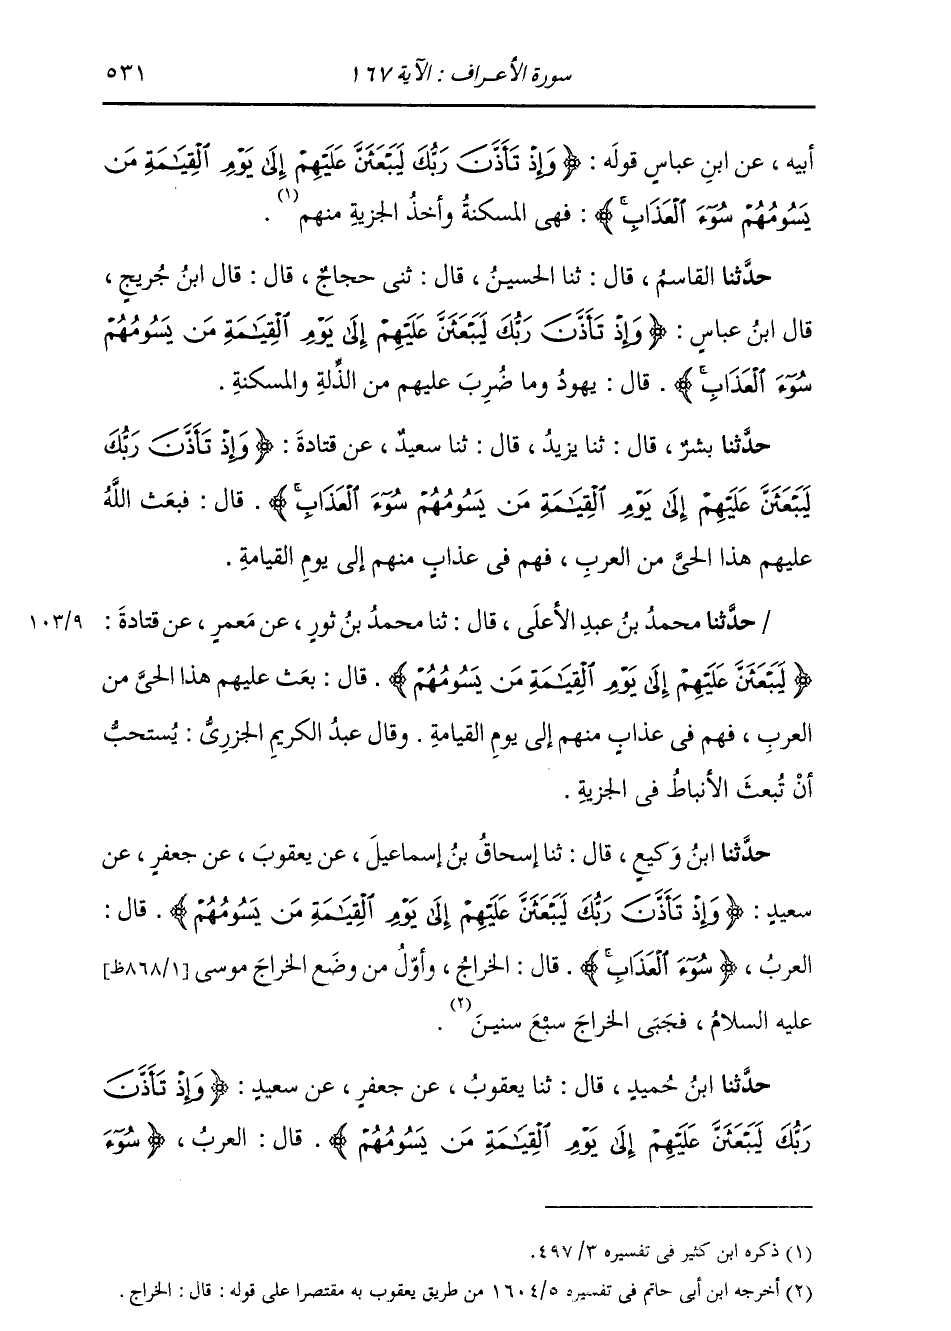 سورة الأعراف : الآية ١٦٧ ٥٣١
أبيه ، عن ابنِ عباسٍ قولَه : ﴿ وَإِذْ تَأَذَّنَ رَبُّكَ لَيَبْعَثَنَّ عَلَيْهِمْ إِلَىٰ يَوْمِ ٱلْقِيَـٰمَةِ مَن
يَسُومُهُمْ سُوٓءَ ٱلْعَذَابِ ۚ ﴾ : فهى المسكنةُ وأخذُ الجزيةِ منهم (١) .
حدَّثنا القاسمُ ، قال : ثنا الحسينُ ، قال : ثنى حجاجٌ ، قال : قال ابنُ جُريجٍ ،
قال ابنُ عباسٍ : ﴿ وَإِذْ تَأَذَّنَ رَبُّكَ لَيَبْعَثَنَّ عَلَيْهِمْ إِلَىٰ يَوْمِ ٱلْقِيَـٰمَةِ مَن يَسُومُهُمْ
سُوٓءَ ٱلْعَذَابِ ۚ ﴾ . قال : يهودُ وما ضُرِبَ عليهم من الذِّلةِ والمسكنةِ .
حدَّثنا بشرٌ ، قال : ثنا يزيدُ ، قال : ثنا سعيدٌ ، عن قتادةَ : ﴿ وَإِذْ تَأَذَّنَ رَبُّكَ
لَيَبْعَثَنَّ عَلَيْهِمْ إِلَىٰ يَوْمِ ٱلْقِيَـٰمَةِ مَن يَسُومُهُمْ سُوٓءَ ٱلْعَذَابِ ۚ ﴾ . قال : فبعَث اللَّهُ
عليهم هذا الحىَّ من العربِ ، فهم فى عذابٍ منهم إلى يومِ القيامةِ .
/ حدَّثنا محمدُ بنُ عبدِ الأعلَى ، قال : ثنا محمدُ بنُ ثورٍ ، عن مَعمرٍ ، عن قتادةَ : ١٠٣/٩
﴿ لَيَبْعَثَنَّ عَلَيْهِمْ إِلَىٰ يَوْمِ ٱلْقِيَـٰمَةِ مَن يَسُومُهُمْ ﴾ . قال : بعَث عليهم هذا الحىَّ من
العربِ ، فهم فى عذابٍ منهم إلى يومِ القيامةِ . وقال عبدُ الكريمِ الجزرىُّ : يُستحبُّ
أنْ تُبعثَ الأنباطُ فى الجزيةِ .
حدَّثنا ابنُ وَكيعٍ ، قال : ثنا إسحاقُ بنُ إسماعيلَ ، عن يعقوبَ ، عن جعفرٍ ، عن
سعيدٍ : ﴿ وَإِذْ تَأَذَّنَ رَبُّكَ لَيَبْعَثَنَّ عَلَيْهِمْ إِلَىٰ يَوْمِ ٱلْقِيَـٰمَةِ مَن يَسُومُهُمْ ﴾ . قال :
العربُ ، ﴿ سُوٓءَ ٱلْعَذَابِ ۚ ﴾ . قال : الخراجُ ، وأوّلُ من وضَع الخراجَ موسى [٨٦٨/١ظ]
عليه السلامُ ، فجَبَى الخراجَ سبْعَ سنينَ (٢) .
حدَّثنا ابنُ حُميدٍ ، قال : ثنا يعقوبُ ، عن جعفرٍ ، عن سعيدٍ : ﴿ وَإِذْ تَأَذَّنَ
رَبُّكَ لَيَبْعَثَنَّ عَلَيْهِمْ إِلَىٰ يَوْمِ ٱلْقِيَـٰمَةِ مَن يَسُومُهُمْ ﴾ . قال : العربُ ، ﴿ سُوٓءَ
(١) ذكره ابن كثير فى تفسيره ٣/ ٤٩٧.
(٢) أخرجه ابن أبى حاتم فى تفسيره ١٦٠٤/٥ من طريق يعقوب به مقتصرا على قوله : قال : الخراج .